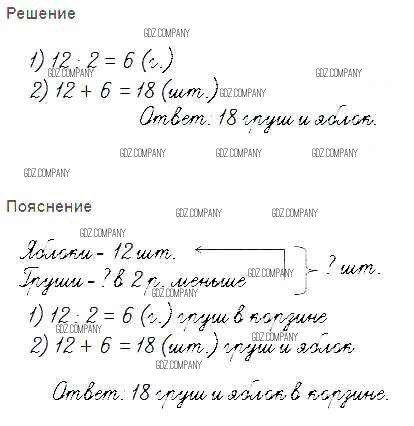 Решение
GDZ.COMPANY
1) 12 : 2 = 6 (г.)
GDZ.COMPANY GDZ.COMPANY
2) 12 + 6 = 18 (шт.)
GDZ.COMPANY
Ответ: 18 груш и яблок.
GDZ.COMPANY GDZ.COMPANY GDZ.COMPANY
GDZ.COMPANY
Пояснение
GDZ.COMPANY GDZ.COMPANY
GDZ.COMPANY
Яблоки - 12 шт.
? шт.
Груши - ? в 2 р. меньше
GDZ.COMPANY
GDZ.COMPANY
1) 12 : 2 = 6 (г.) груш в корзине
GDZ.COMPANY
2) 12 + 6 = 18 (шт.) груш и яблок
GDZ.COMPANY
GDZ.COMPANY
Ответ: 18 груш и яблок в корзине.